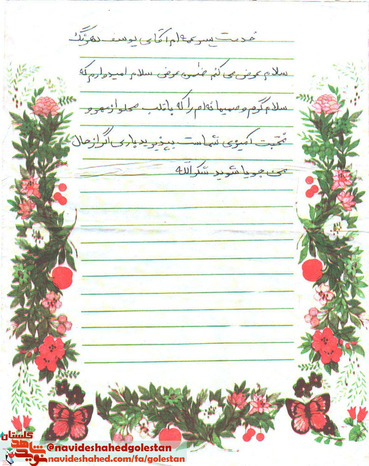 خدمت پسر عمه ام آقای یوسف
سلام عرض می کنم ضمن عرض سلام امیدوارم که
سلام گرم و صمیمانه ام را که با قلب مملو از مهر و
محبت بسوی شماست بپذیرید باری اگر از حال
من جویا شوید شکرالله
گلستان
نوید شاهد
@navideshahedgolestan
navideshahed.com/fa/golestan